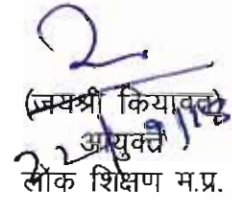 (जयश्री कियावत)
आयुक्त
22/9/18
लोक शिक्षण म.प्र.